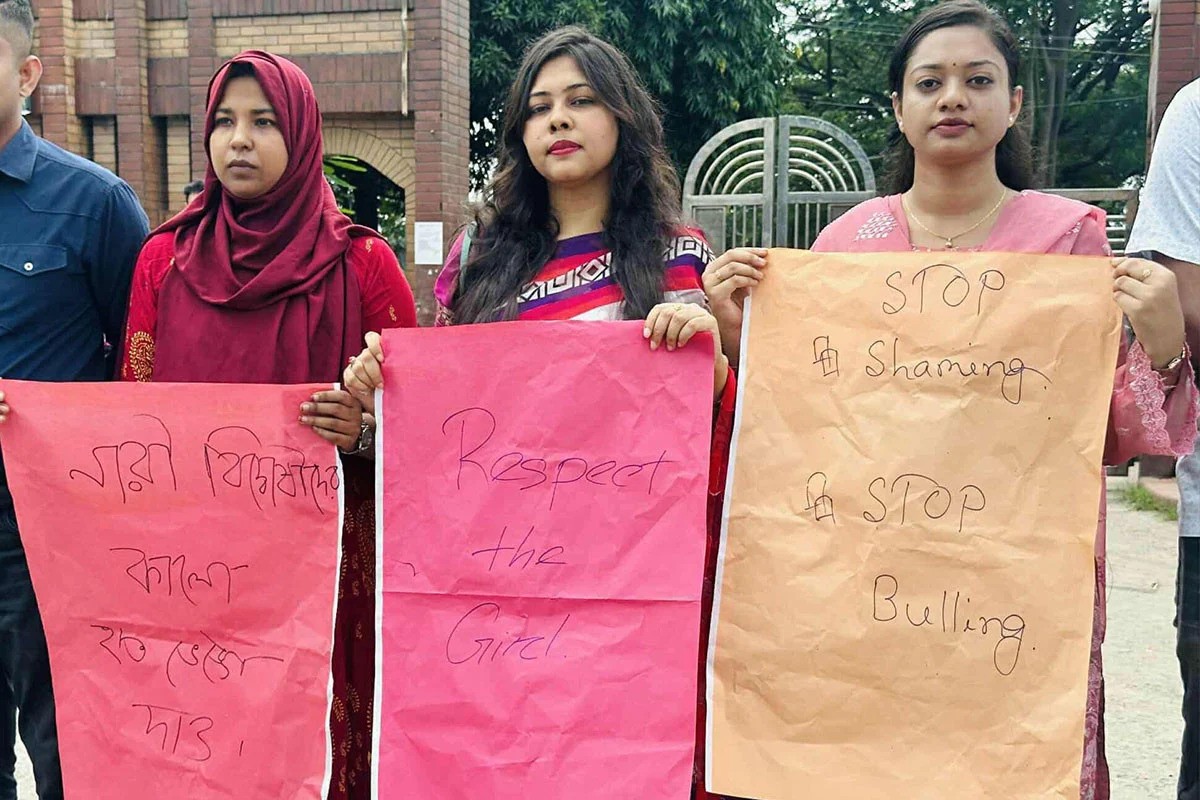 নারী বিদ্বেষীদের
কালো
হাত ভেঙ্গে
দাও।
Respect
the
Girl.
STOP
Shaming.
STOP
Bulling.